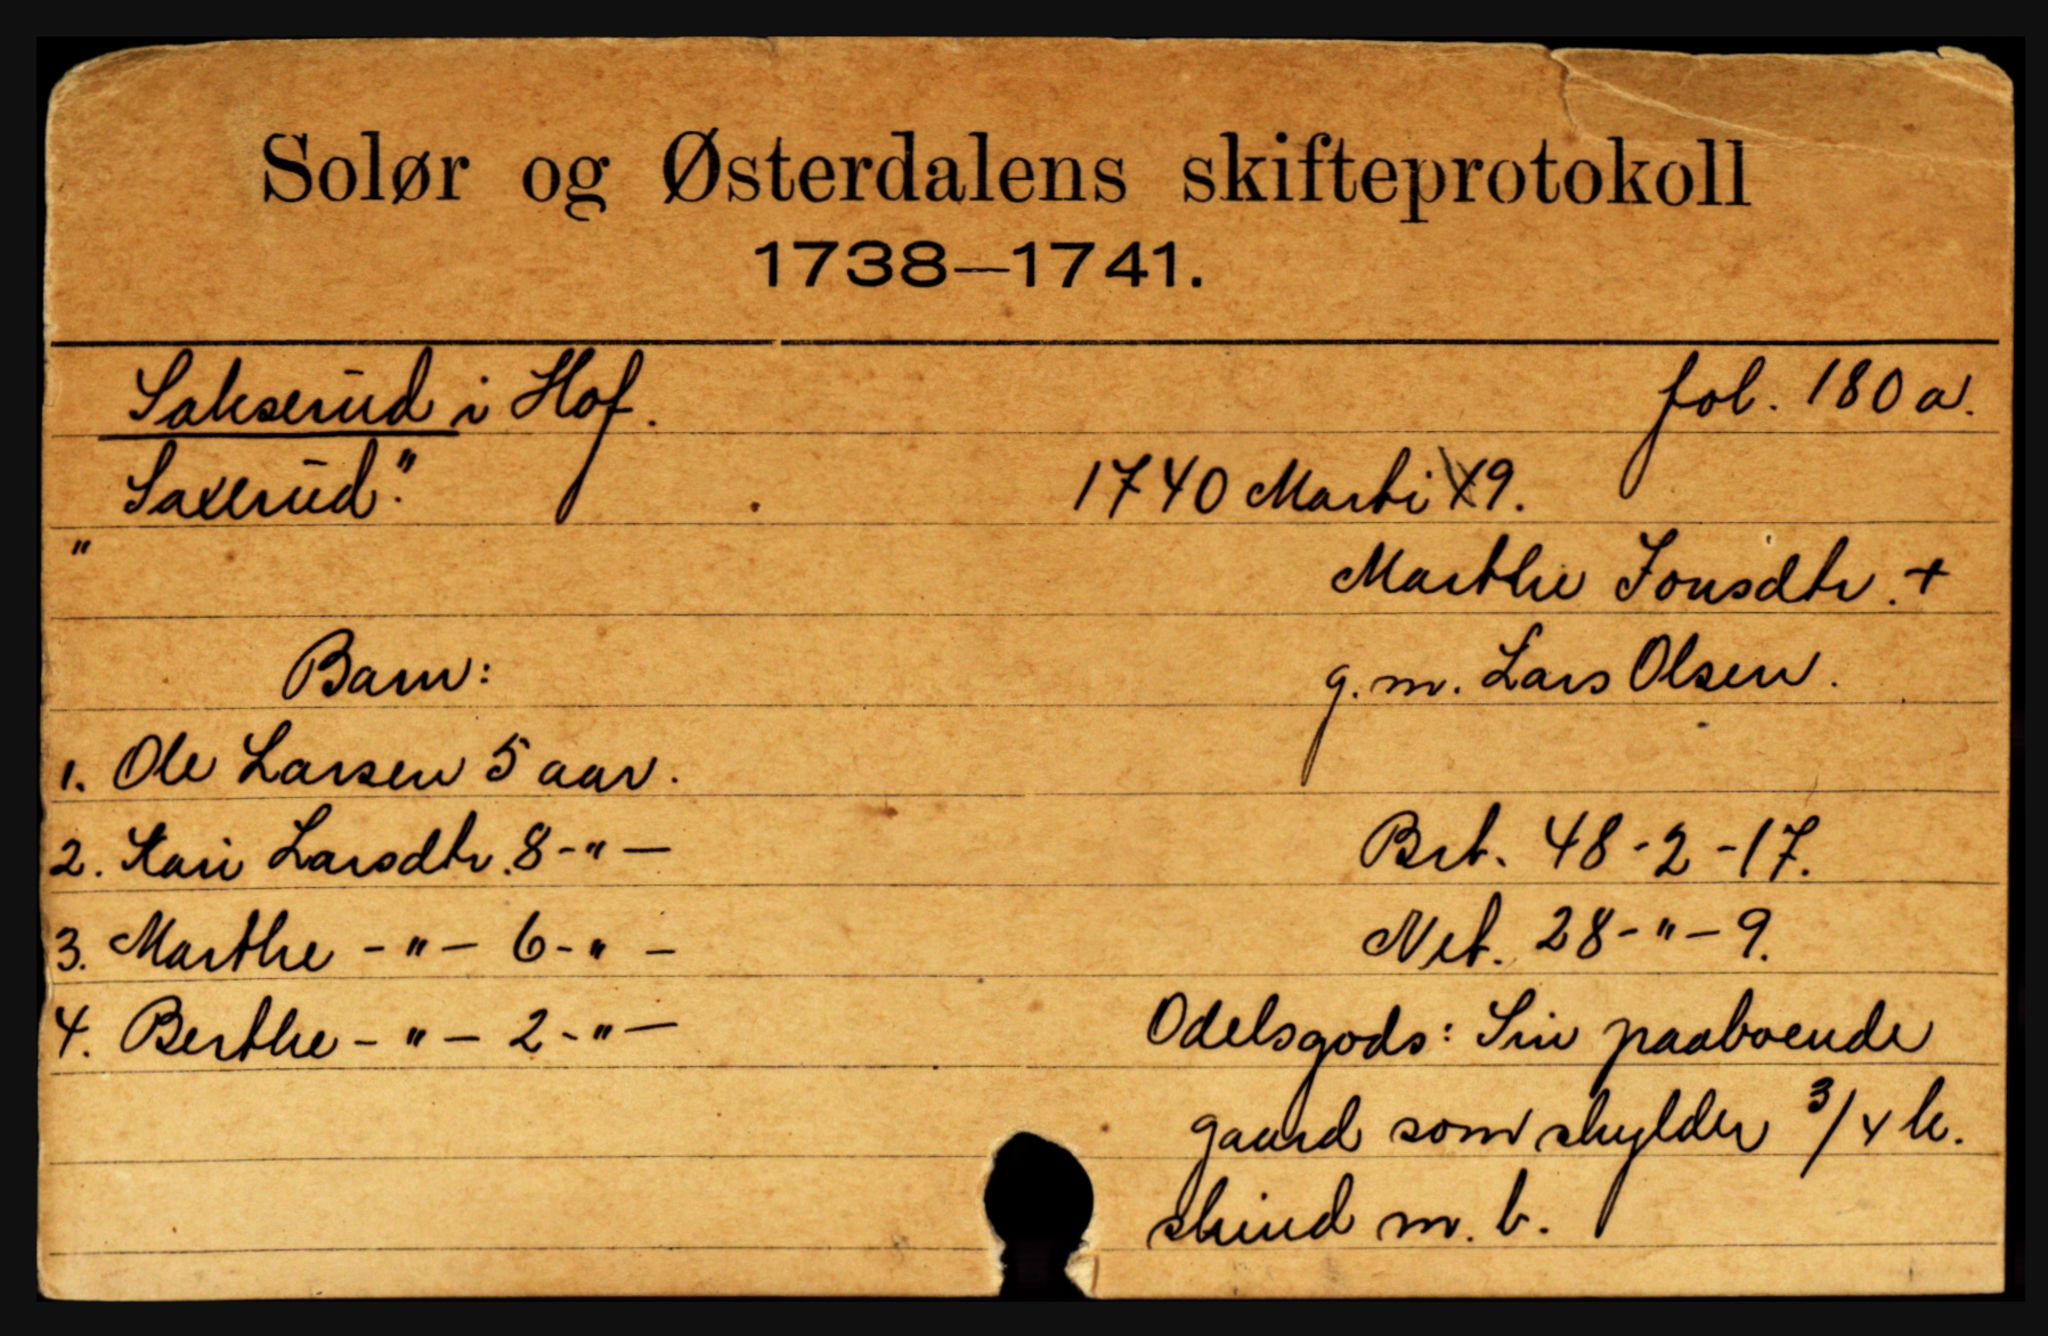 Solør og Østerdalens skifteprotokoll
1738—1741.
Sakserud i Hof. fol. 180 a.
"Saxerud". 1740 Marti 19.
Marthe Jonsdtr. +
Barn: g. m. Lars Olsen.
1. Ole Larsen 5 aar.
2. Kari Larsdtr. 8 - " - Brt. 48 - 2 - 17.
3. Marthe - " - 6 - " - Net. 28 - " - 9.
4. Berthe - " - 2 - " - Odelsgods: Sin paaboende
gaard som skylder 3/4 k.
skind m. b.